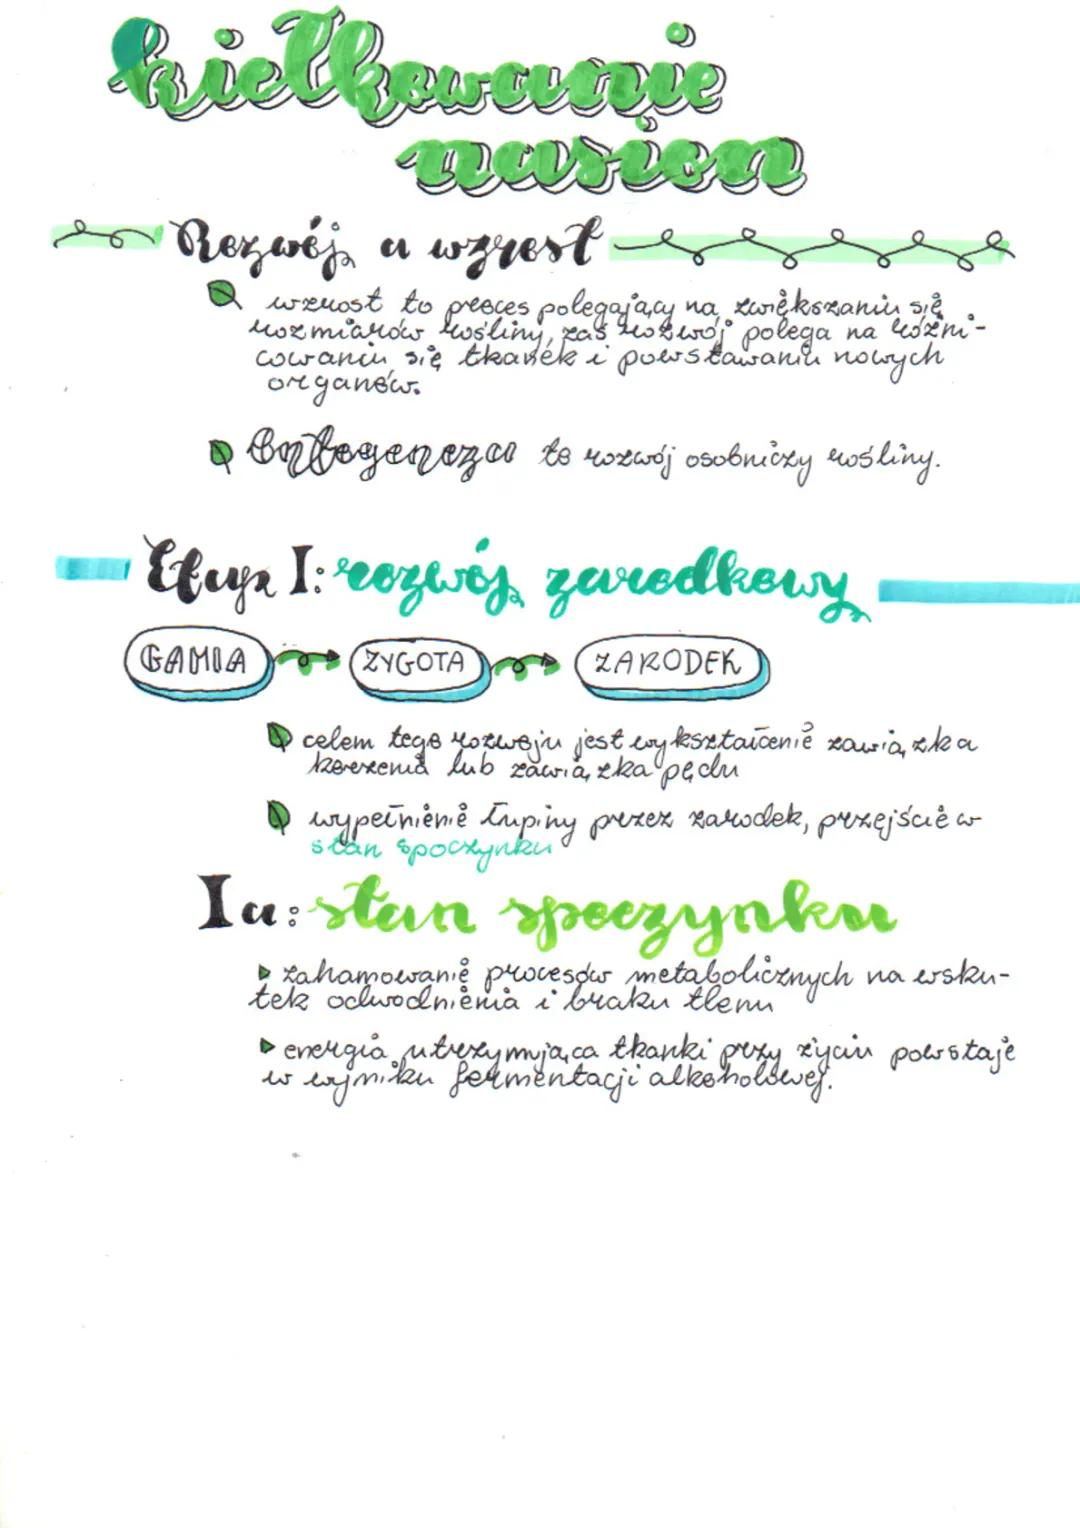 kiełkowanie
nasion
Rozwój a wzrost
wzrost to proces polegający na zwiększaniu się
rozmiarów rośliny, zaś rozwój polega na różni-
cowaniu się tkanek i powstawaniu nowych
organów.
Ontogeneza to rozwój osobniczy rośliny.
Etap I: rozwój zarodkowy
GAMIA ZYGOTA ZARODEK
celem tego rozwoju jest wykształcenie zawiązka
korzenia lub zawiązka pędu
wypełnienie łupiny przez zarodek, przejście w
stan spoczynku
Ia: stan spoczynku
zahamowanie procesów metabolicznych na wsku-
tek odwodnienia i braku tlenu
energia utrzymująca tkanki przy życiu powstaje
w wyniku fermentacji alkoholowej.